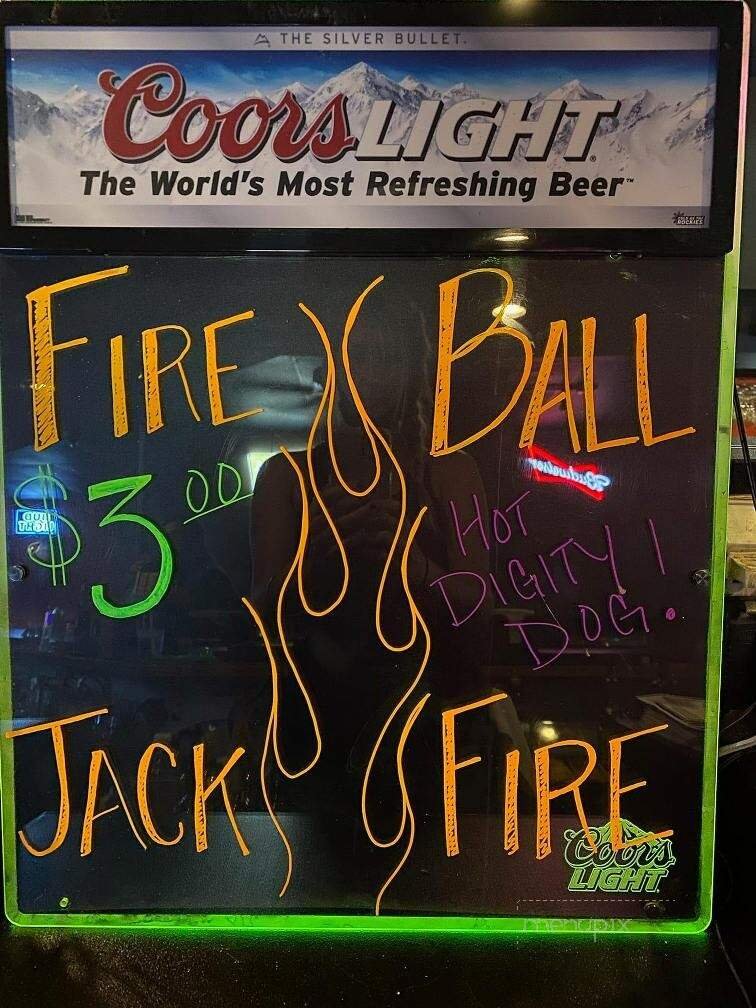 THE SILVER BULLET.
Coors LIGHT
The World's Most Refreshing Beer™
FIRE BALL
$3.00
Budweiser
HOT
DIGITY
DOG!
JACK FIRE
Coors
LIGHT
menupix